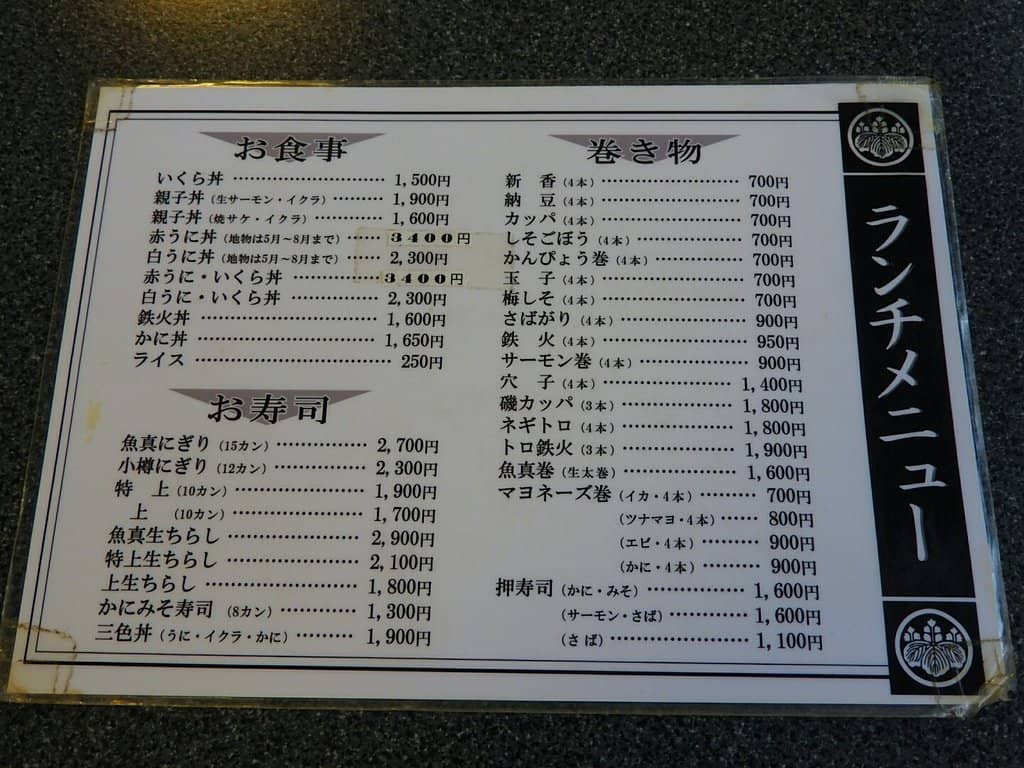 ランチメニュー
お食事
いくら丼 ……………………… 1,500円
親子丼（生サーモン・イクラ）……… 1,900円
親子丼（焼サケ・イクラ）………… 1,600円
赤うに丼（地物は5月～8月まで）…… 3400円
白うに丼（地物は5月～8月まで）…… 2,300円
赤うに・いくら丼 ……………… 3400円
白うに・いくら丼 ……………… 2,300円
鉄火丼 ……………………… 1,600円
かに丼 ……………………… 1,650円
ライス ……………………… 250円
お寿司
魚真にぎり（15カン）…………… 2,700円
小樽にぎり（12カン）…………… 2,300円
特　上（10カン）………………… 1,900円
上　（10カン）………………… 1,700円
魚真生ちらし ………………… 2,900円
特上生ちらし ………………… 2,100円
上生ちらし …………………… 1,800円
かにみそ寿司（8カン）………… 1,300円
三色丼（うに・イクラ・かに）……… 1,900円
巻き物
新　香（4本）…………………… 700円
納　豆（4本）…………………… 700円
カッパ（4本）…………………… 700円
しそごぼう（4本）……………… 700円
かんぴょう巻（4本）…………… 700円
玉　子（4本）…………………… 700円
梅しそ（4本）…………………… 700円
さばがり（4本）………………… 900円
鉄　火（4本）…………………… 950円
サーモン巻（4本）……………… 900円
穴　子（4本）…………………… 1,400円
磯カッパ（3本）………………… 1,800円
ネギトロ（4本）………………… 1,800円
トロ鉄火（3本）………………… 1,900円
魚真巻（生太巻）……………… 1,600円
マヨネーズ巻（イカ・4本）……… 700円
（ツナマヨ・4本）…… 800円
（エビ・4本）……… 900円
（かに・4本）……… 900円
押寿司（かに・みそ）…………… 1,600円
（サーモン・さば）………… 1,600円
（さば）………………… 1,100円